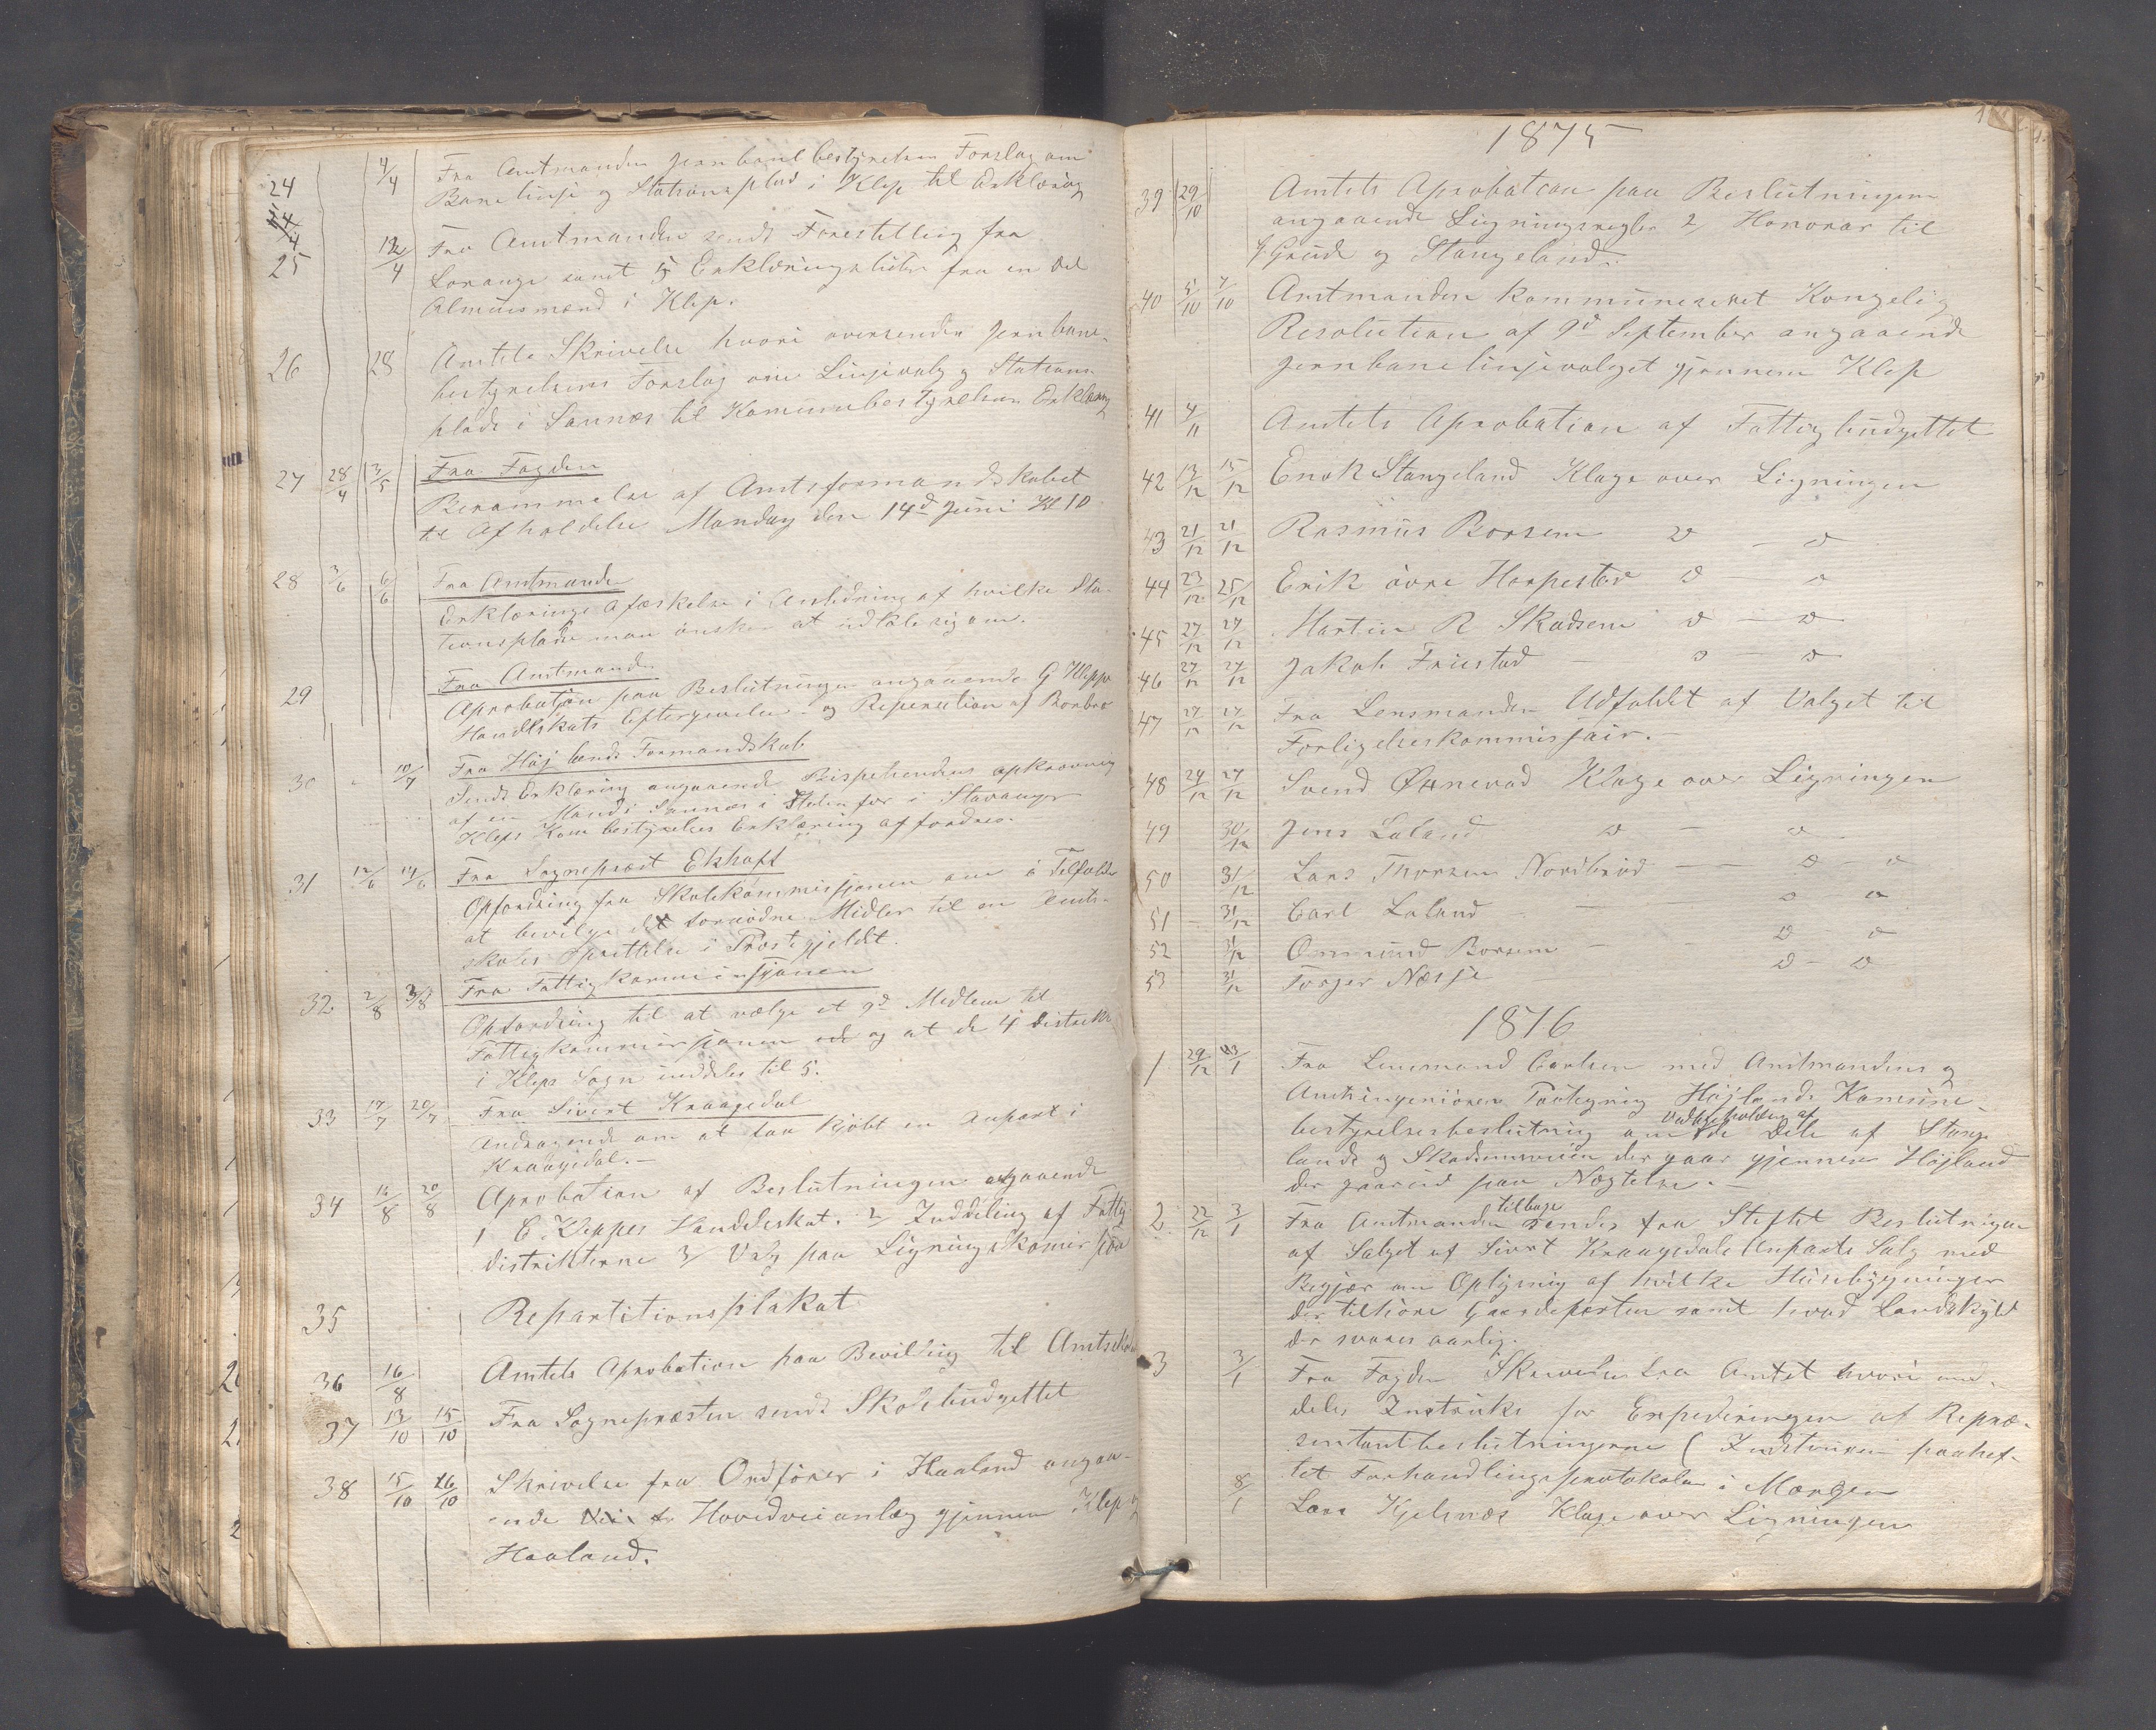 24 4/4 Fra Amtmanden Jernbanebestyrelsens Forslag om
Banelinje og Stationsplads i Klep til Erklæring
25 12/4 Fra Amtmanden sendt Forestilling fra
Lorange samt 5 Erklæringslister fra en Del
Almuesmænd i Klep.
26 28 Amtets Skrivelse hvori oversendes Jernbane-
bestyrelsens Forslag om Linjevalg og Stations
plads i Sannæs til Kommunebestyrelsens Erklæring
27 28/4 3/5 Fra Fogden
Berammelse af Amtsformandskabet
til Afholdelse Mandag den 14d Juni Kl 10
28 3/6 6/6 Fra Amtmanden
Erklærings Afæskelse i Anledning af hvilke Sta-
tionsplade man ønsker at udtale sig om.
29 Fra Amtmanden
Aprobation paa Beslutningen angaaende G Kleppe
Handelskats Eftergivelse og Reperation af Borebro
30 - 10/7 Fra Højlands Formandskab
Sendt Erklæring angaaende Bispestolens opkrævning
af en Mands Sannæs i Steden for i Stavanger
Kleps Kom bestyrelses Erklæring affordres.
31 12/6 14/6 Fra Sognepræst Ekhoff
Opfordring fra Skolekommissjonen om i Tilfælde
at bevilge det fornødne Midler til en Amts-
skoles Oprettelse i Præstegjeldet.
32 2/8 3/8 Fra Fattigkommissjonen
Opfordring til at vælge et 9d Medlem til
Fattigkommissjonen og at de 4 Distrikt
i Kleps Sogn inddeles til 5.
33 17/7 20/7 Fra Sivert Kraagedal
Andragende om at faa kjøbt en Anpart i
Kraagedal.-
34 16/8 20/8 Aprobation af Beslutningen angaaende
1 E. Kleppes Handelskat. 2/ Inddeling af Fattig
distrikterne 3/ Valg paa Ligningskomissjon
35 Repartitionsplakat
36 16/8 Amtets Aprobation paa Bevilling til Amtsskole
37 13/10 15/10 Fra Sognepræsten sendt Skolebudgettet
38 15/10 16/10 Skrivelse fra Ordfører i Haaland angaa-
ende Hovedveianlæg gjennem Klep og
Haaland.
1875
39 29/10 Amtets Aprobation paa Beslutningerne
angaaende Ligningsregler 2/ Honorar til
G. Grude og Stangeland.
40 5/10 7/10 Amtmanden kommuneseret Kongelig
Resolution af 9d September angaaende
Jernbanelinjevalget gjennem Klep
41 4/11 Amtets Aprobation af Fattigbudgettet
42 13/12 15/12 Enok Stangeland Klage over Ligningen
43 21/12 21/12 Rasmus Borsem d - d
44 23/12 25/12 Erik øvre Horpestad d - d
45 27/12 27/12 Martin R Skadsem d - d
46 27/12 27/12 Jakob Friestad - d - d
47 27/12 27/12 Fra Lensmanden Udfaldet af Valget til
Forligelseskommissjair.-
48 24/12 27/12 Svend Ønnevad Klage over Ligningen
49 30/12 Jens Laland d - d
50 31/12 Lars Thorsen Nordbraad - - d - d
51 - 31/12 Carl Laland - - d d
52 31/12 Ommund Borsem - - d - d
53 31/12 Torger Næsje d - d
1876
1 29/12 3/1 Fra Lensmand Carlsen med Amtmandens og
Amtsingeniørens Paategning Højlands Komune-
bestyrelsesbeslutning om Vedligeholdelse af de Dele af Stange
lands og Skadsemveien der gaar gjennem Højland
der gaar ud paa Nægtelse.-
2 22/12 3/1 Fra Amtmanden tilbage sendes fra Stiftet Beslutningen
af Salget af Sivert Kraagedals Anparts Salg med
Begjær om Oplysning af hvilke Husebygninger
der tilhøre Gaardeparten samt hvad Landskyld
der svares aarlig.
3 3/1 Fra Fogden Skrivelse fra Amtet hvori med-
deles Instruks for Expederingen af Repræ-
sentantbeslutningerne (Instruxen paahef-
tet Forhandlingsprotokolen i Margen
8/1 Lars Kjelsnæs Klage over Ligningen